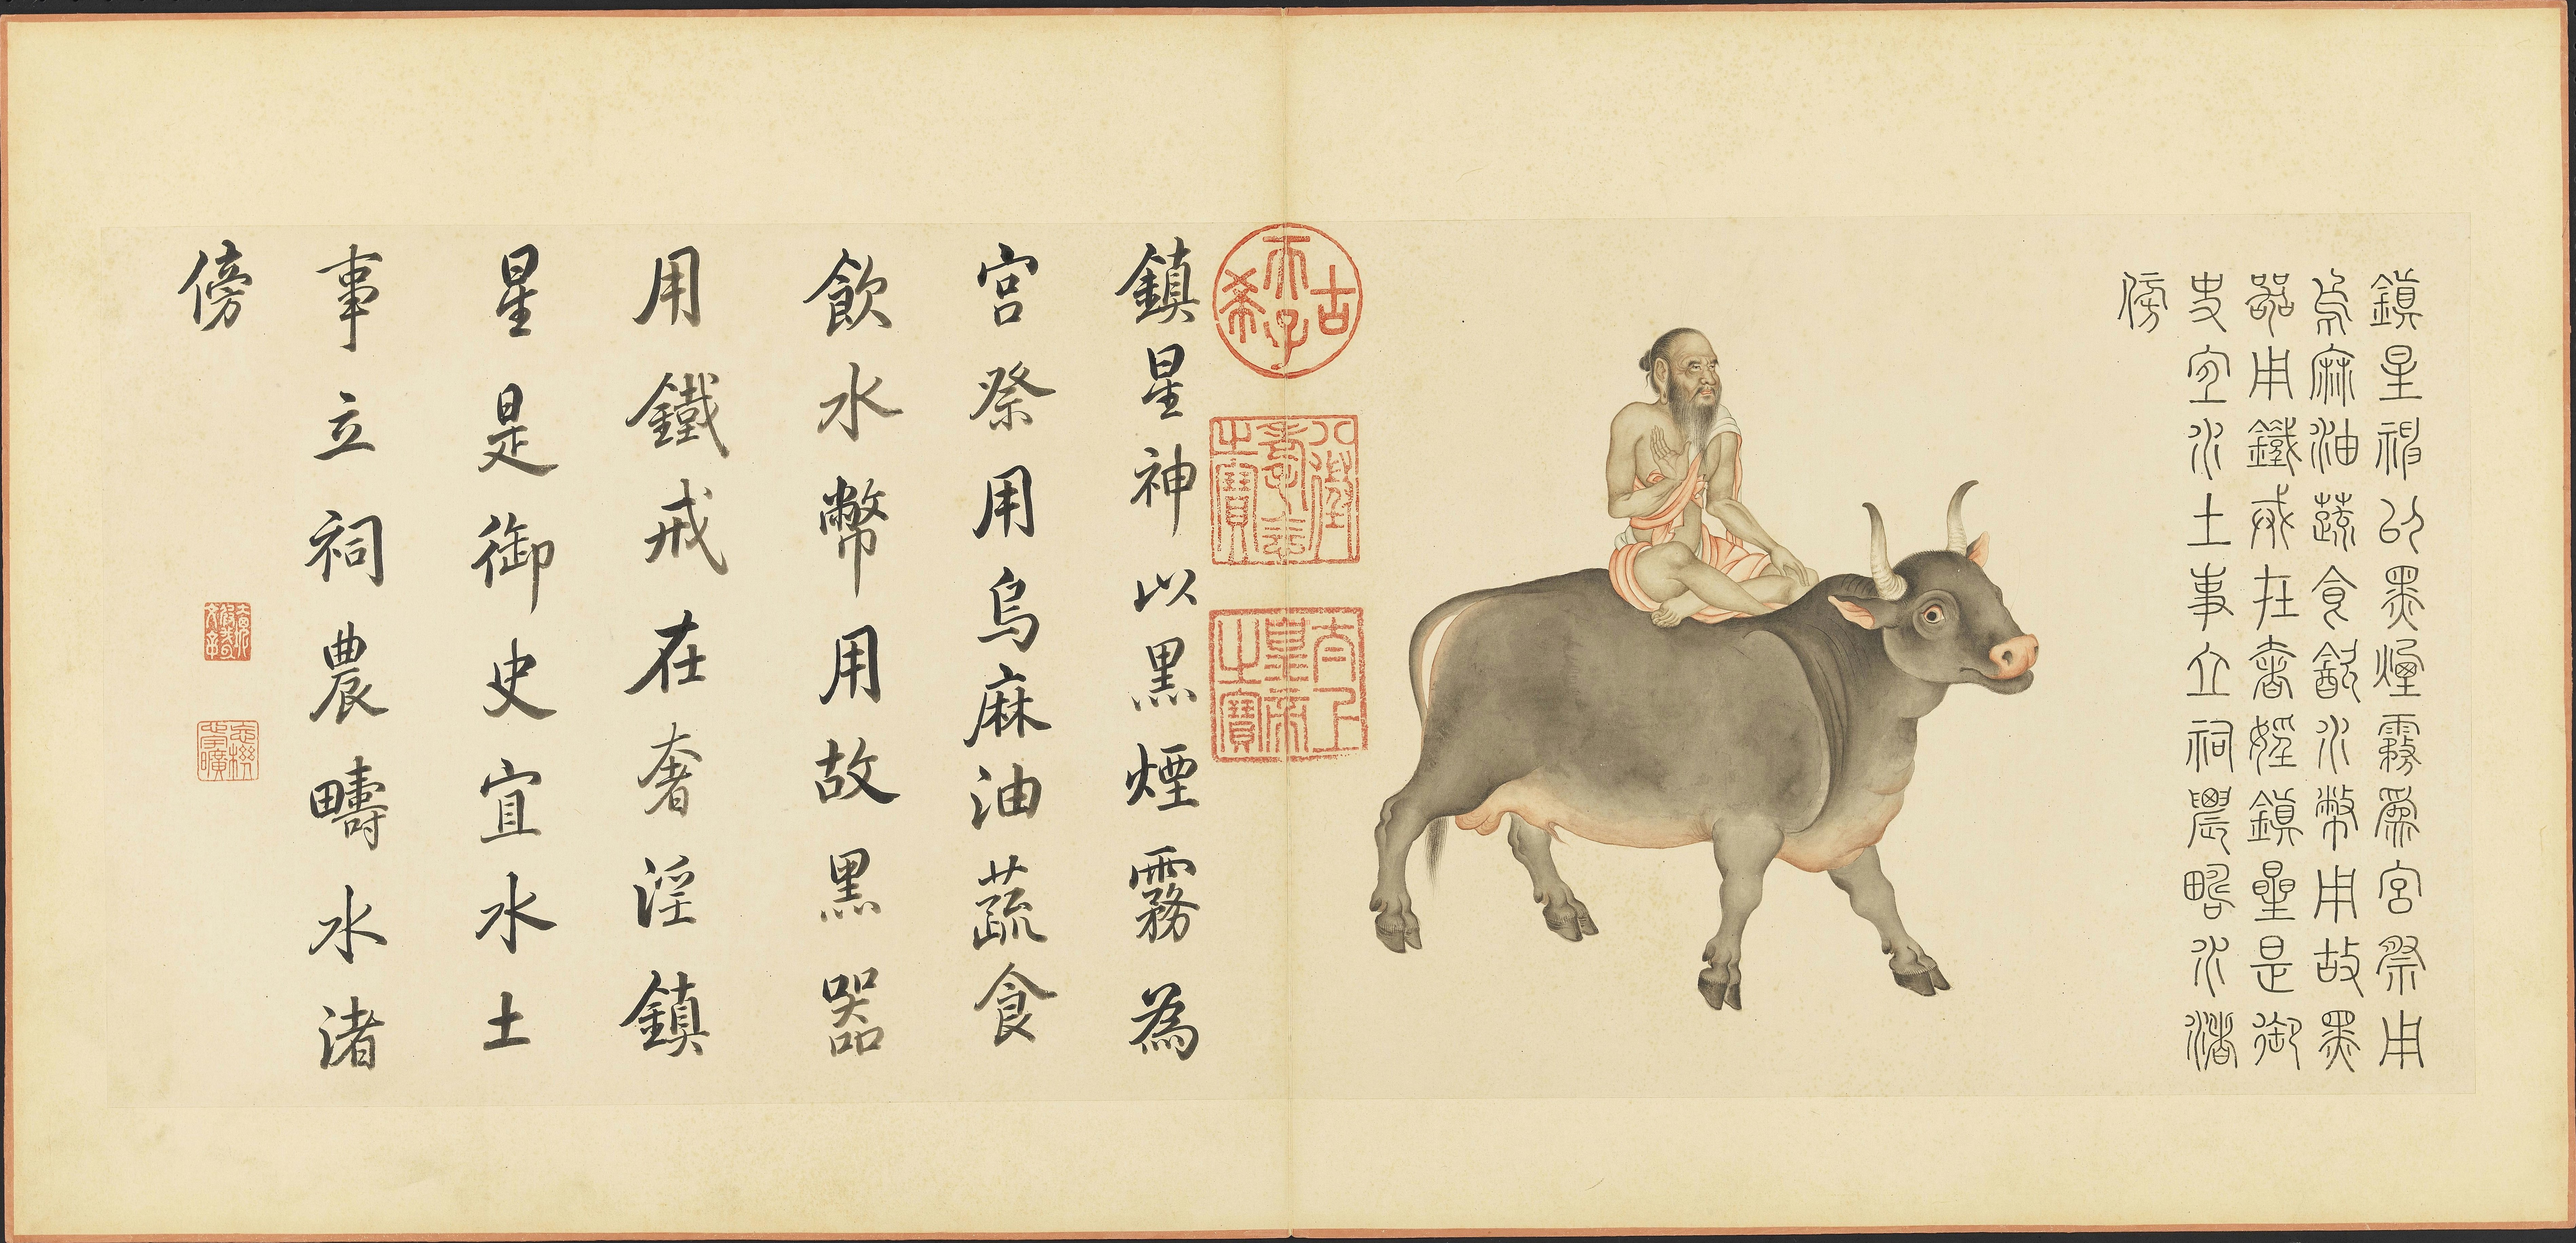 鎮星神以黑煙霧爲宮祭用
烏麻油蔬食飲水幣用故黑
器用鐵戒在奢婬鎮星是御
史宜水土事立祠農疇水渚
傍
古希天子
八徵耄念之寶
太上皇帝之寶
鎮星神以黑煙霧為
宮祭用烏麻油蔬食
飲水幣用故黑器
用鐵戒在奢淫鎮
星是御史宜水土
事立祠農疇水渚
傍